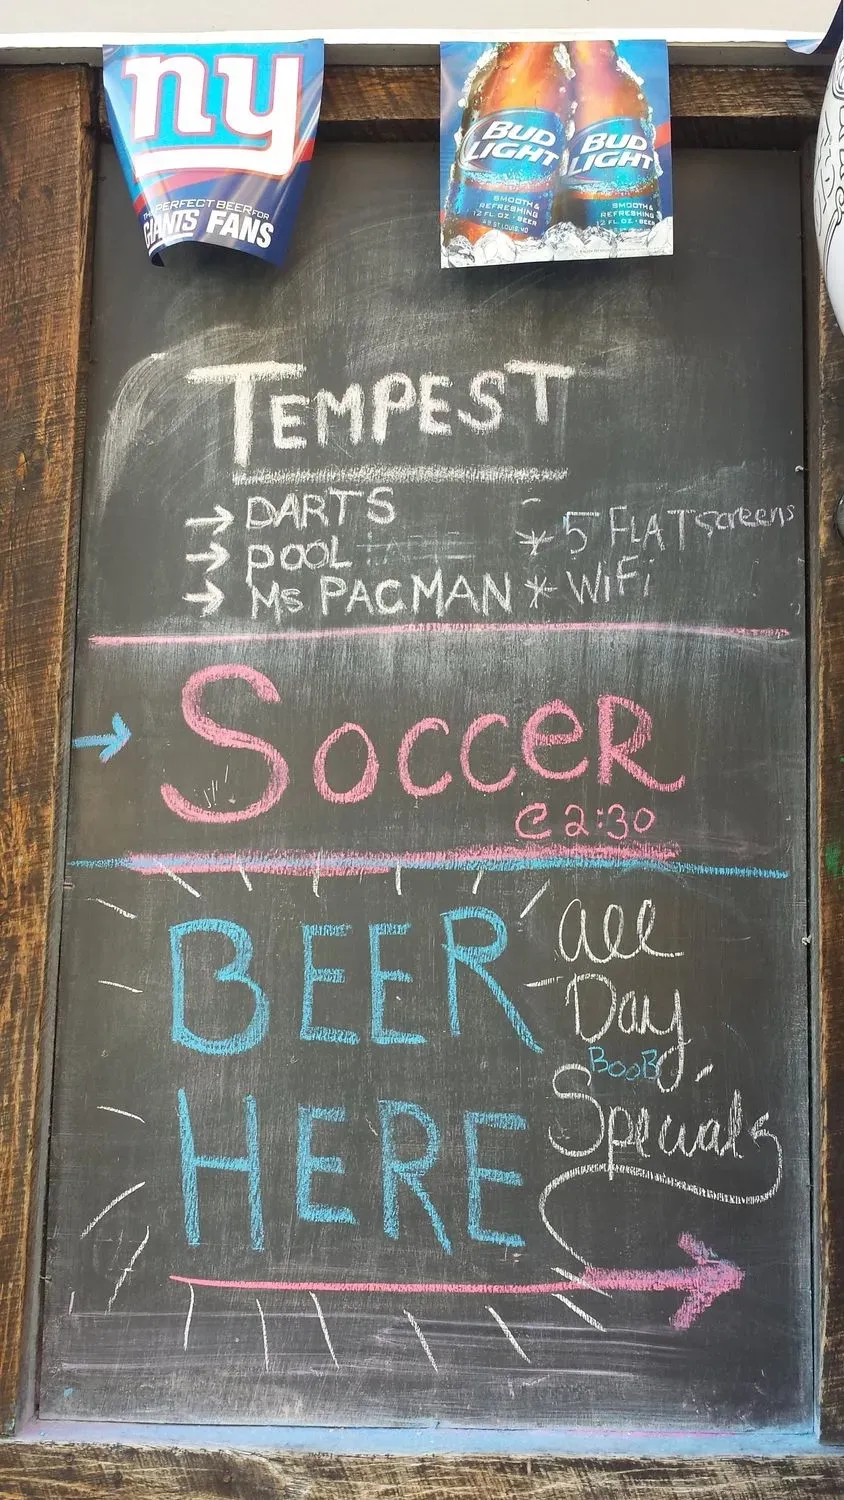 ny
THE PERFECT BEER FOR
GIANTS FANS
BUD LIGHT
SMOOTH & REFRESHING
12 FL. OZ. • BEER
A-B ST. LOUIS, MO
BUD LIGHT
SMOOTH & REFRESHING
12 FL. OZ. • BEER
TEMPEST
→ DARTS
→ POOL
→ Ms PACMAN
* 5 FLATscreens
* WiFi
→ SocceR
@ 2:30
BEER
HERE
all
Day
BooB
Specials